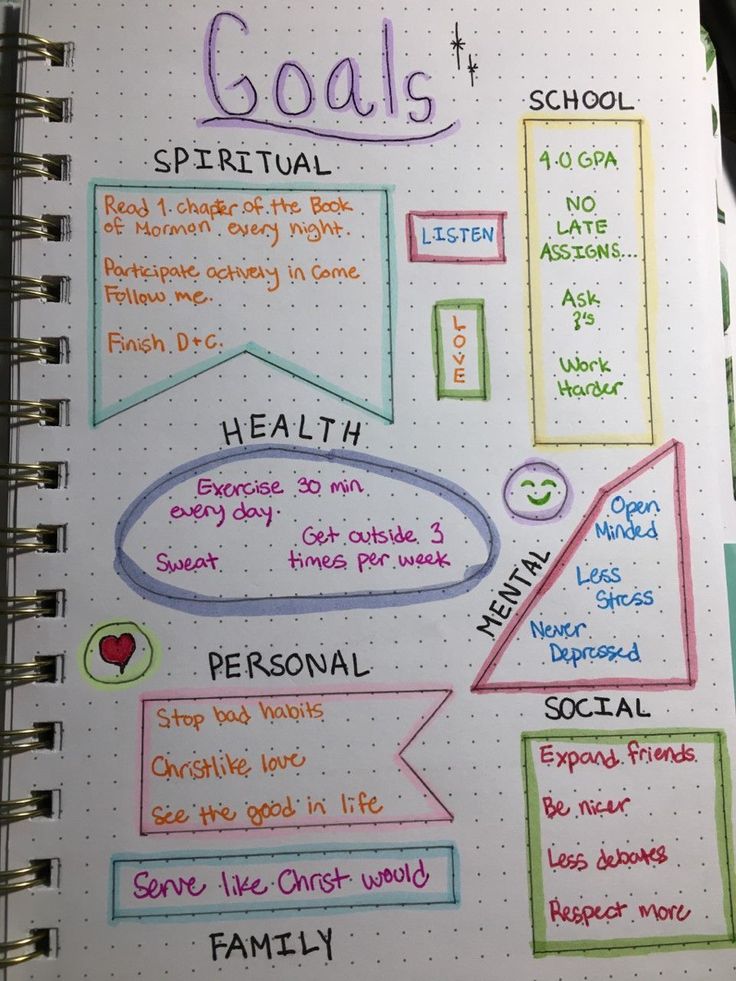 Goals
SPIRITUAL
Read 1 chapter of the Book
of Mormon every night.
Participate actively in Come
Follow me.
Finish D+C.
LISTEN
LOVE
SCHOOL
4.0 GPA
NO
LATE
ASSIGNS...
Ask
?'s
Work
Harder
HEALTH
Exercise 30 min
every day.
Get outside 3
times per week
Sweat
MENTAL
Open
Minded
Less
Stress
Never
Depressed
PERSONAL
Stop bad habits
Christlike love
See the good in life
SOCIAL
Expand friends
Be nicer
Less debates
Respect more
Serve like Christ would
FAMILY